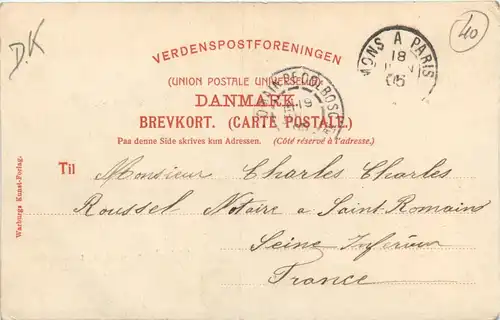 D.K
40
VERDENSPOSTFORENINGEN
(UNION POSTALE UNIVERSELLE)
DANMARK.
BREVKORT. (CARTE POSTALE.)
Paa denne Side skrives kun Adressen. (Côté réservé à l'adresse.)
MONS A PARIS
18
05
19
Til Monsieur Charles Charles
Roussel Notaire a Saint-Romains
Seine Inférieur
France
Warburgs Kunst-Forlag.